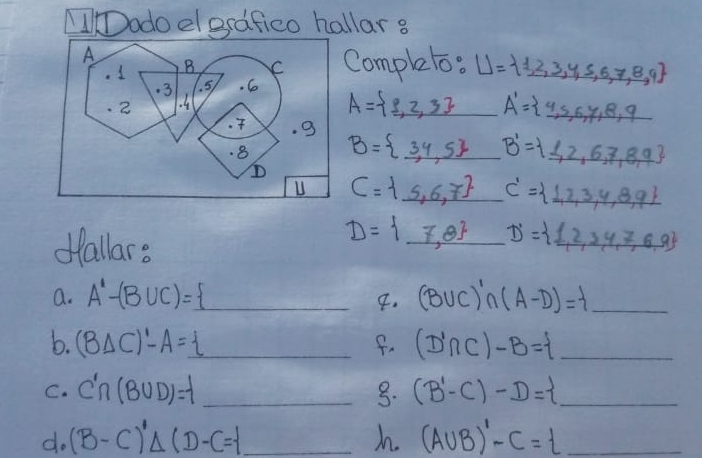 1 Dado el gráfico hallar:
A B C
.1 .3 .5 .6
.2 .4
.7 .9
.8
D U
Completo: U={1,2,3,4,5,6,7,8,9}
A={1,2,3} A'={4,5,6,7,8,9
B={ 3,4,5} B'={1,2,6,7,8,9}
C={ 5,6,7} C'={1,2,3,4,8,9}
D={ 7,8} D'={1,2,3,4,7,6,9}
Hallar:
a. A'-(BUC)={
b. (B∆C)'-A={
c. C'∩(BUD)={
d. (B-C)'∆(D-C={
e. (BUC)'∩(A-D)={
f. (D'∩C)-B={
g. (B'-C)-D={
h. (AUB)'-C={